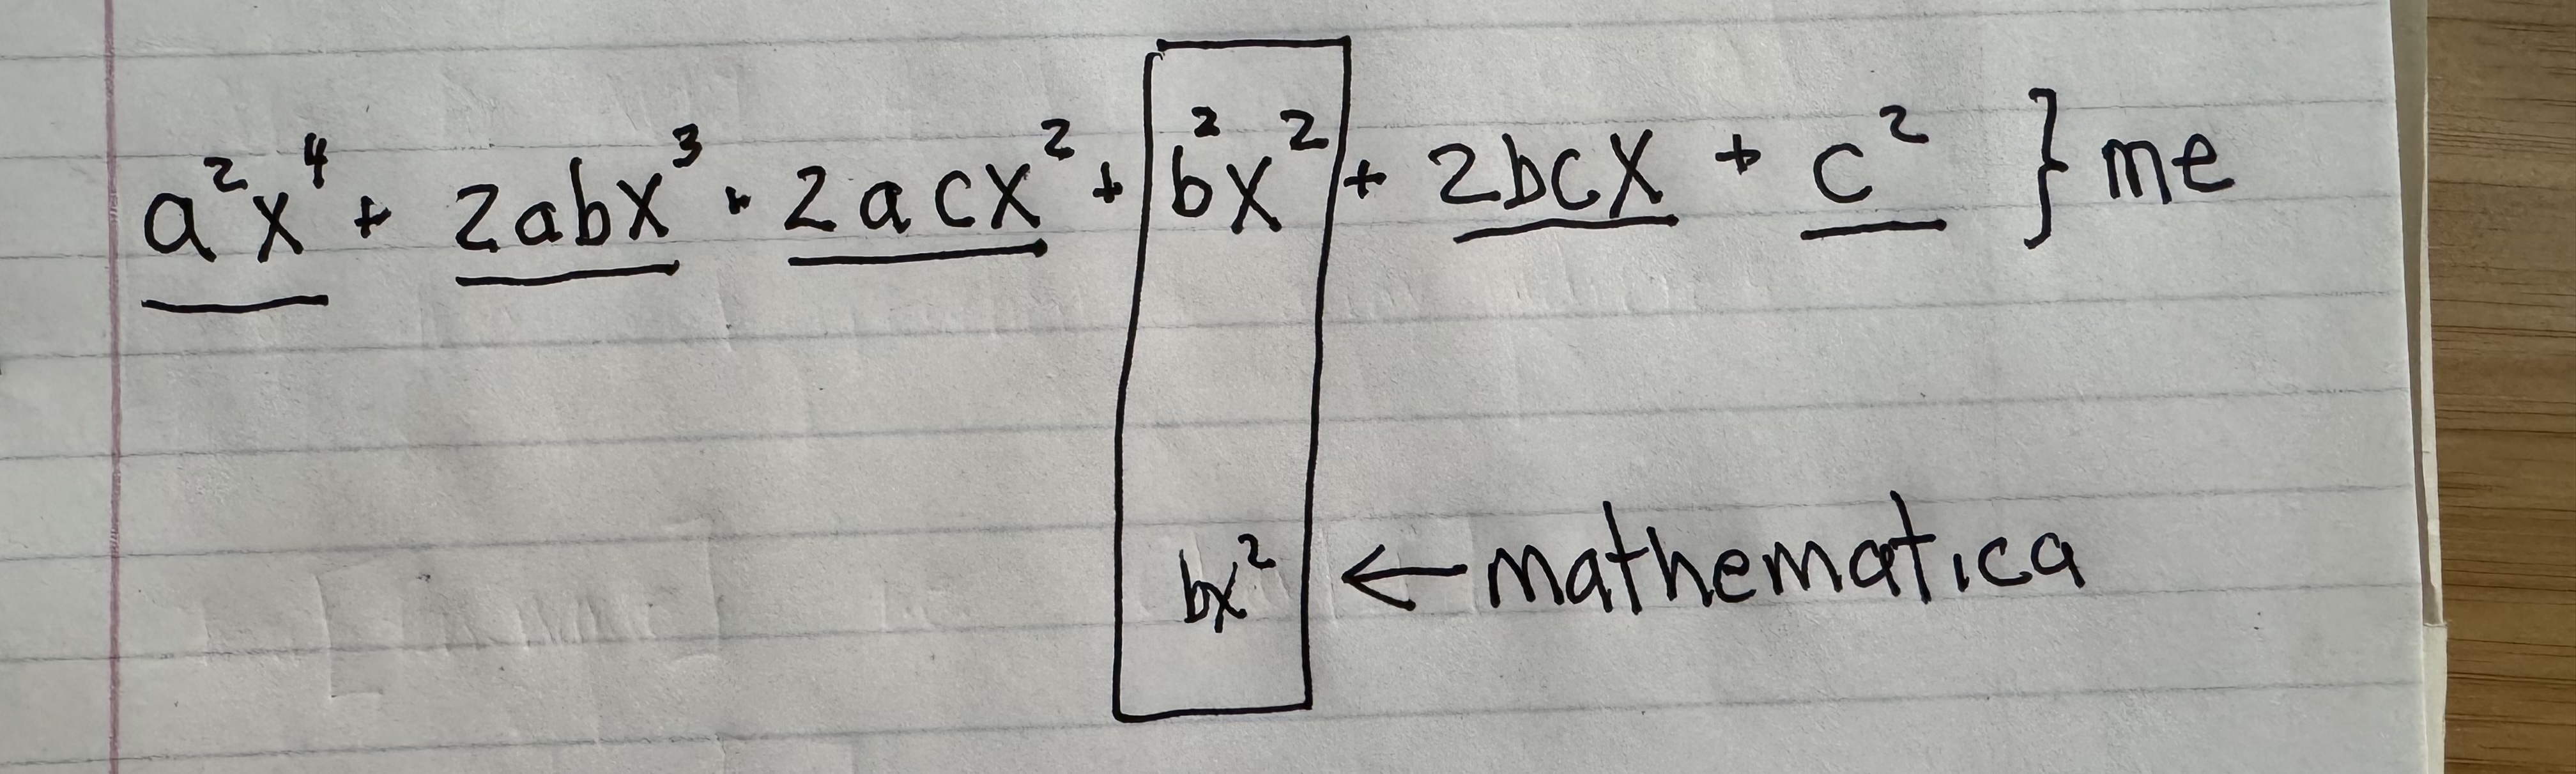 a²x⁴ + 2abx³ + 2acx² + b²x² + 2bcx + c² } me
bx² ← mathematica